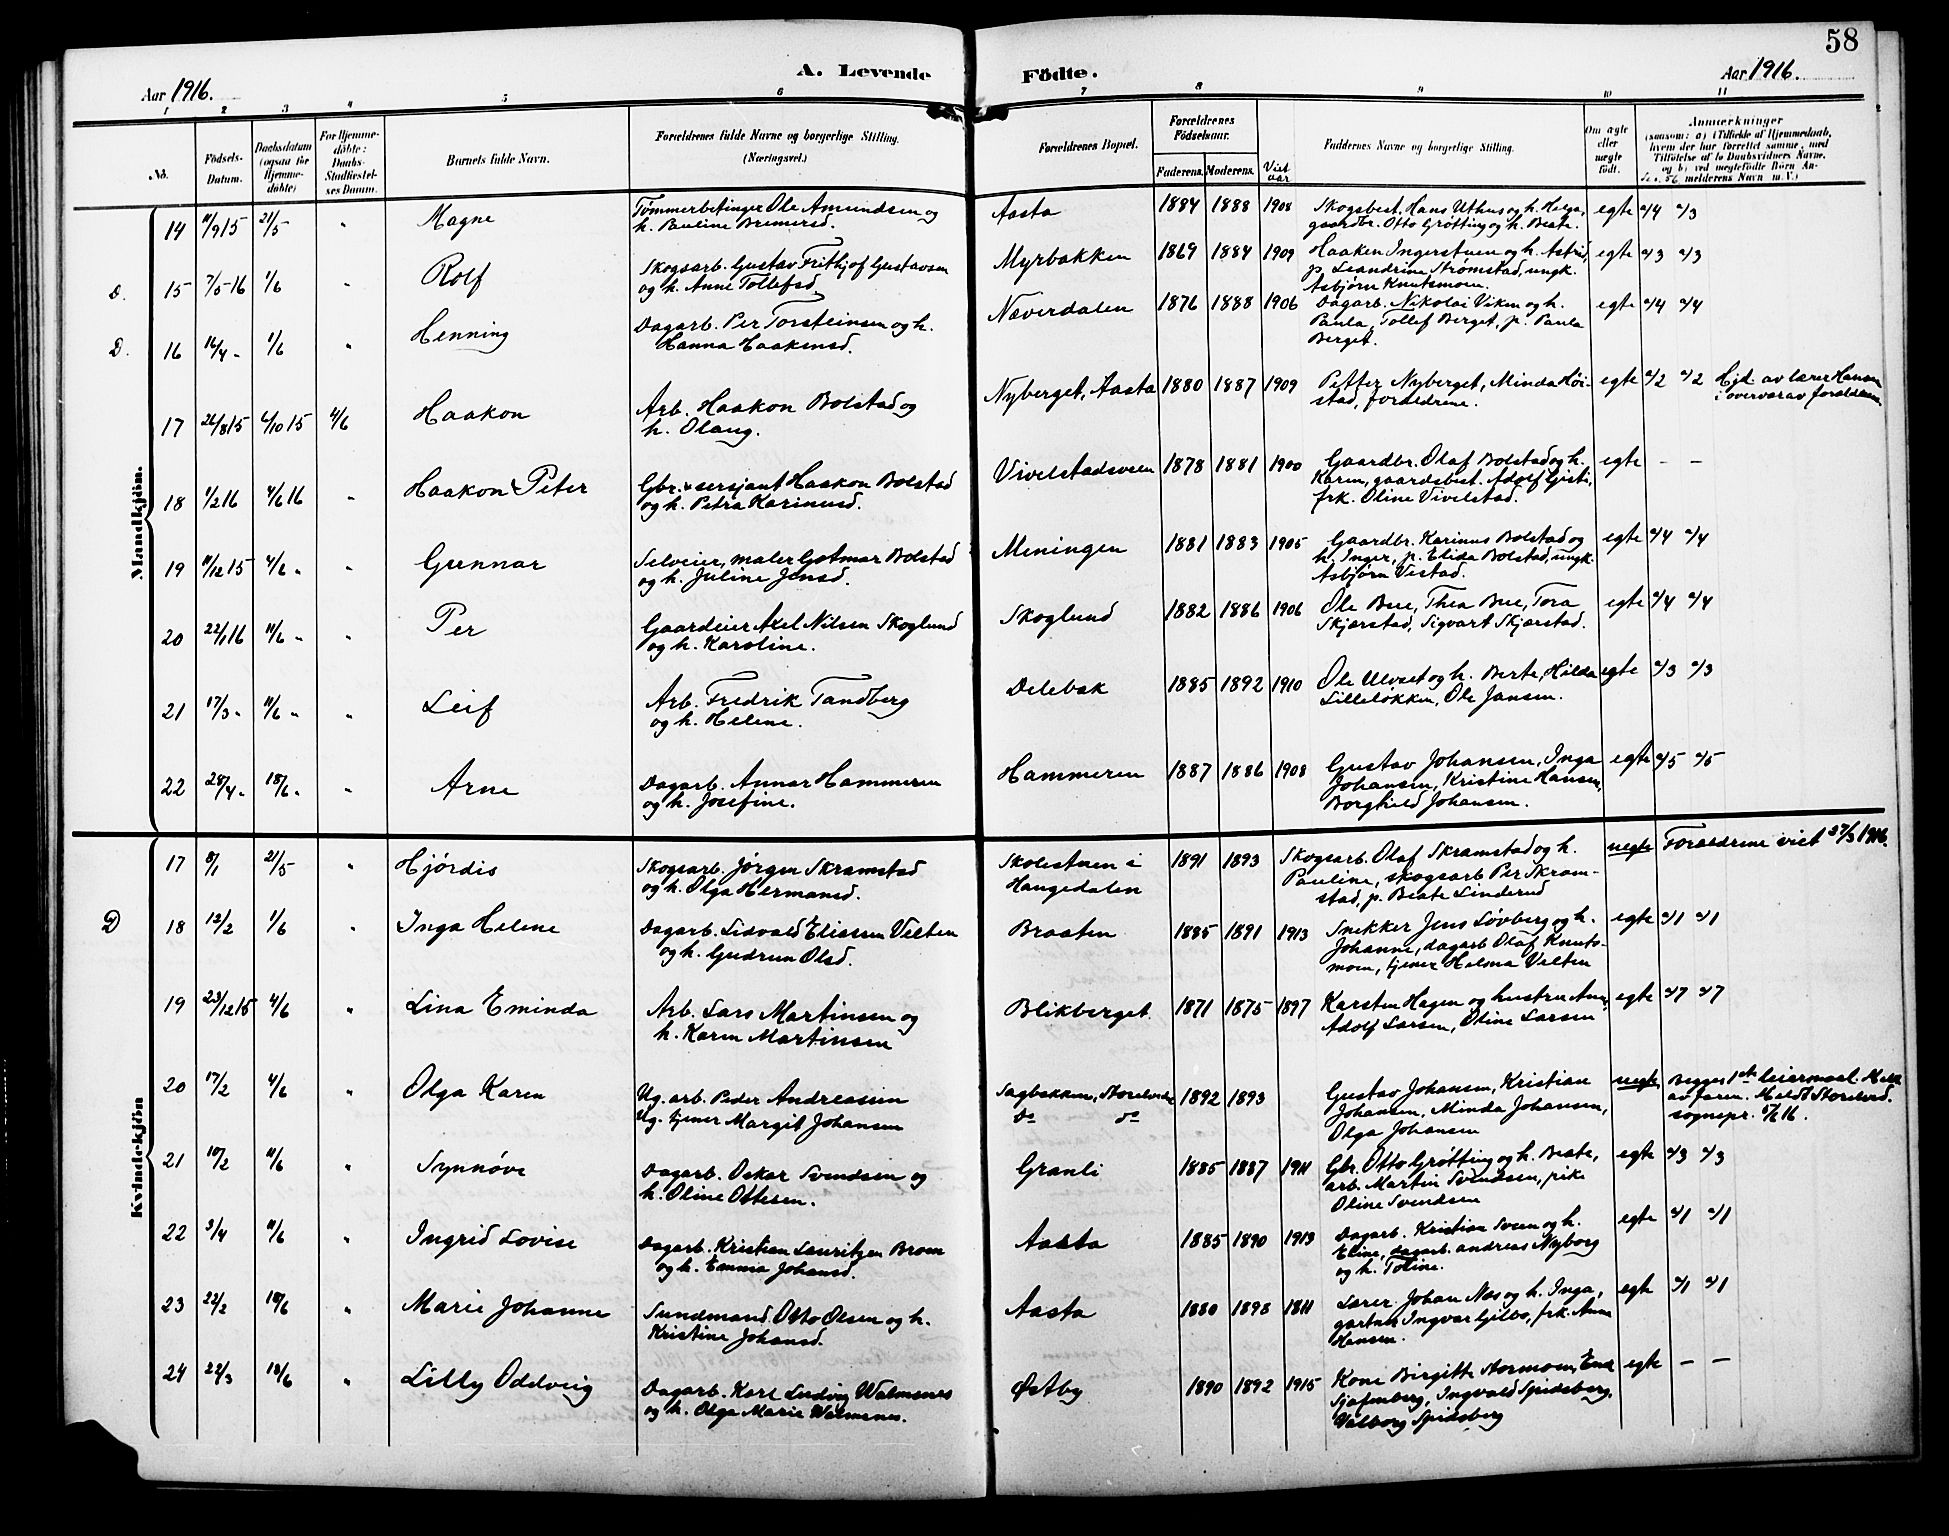 58
Aar 1916.
A. Levende
Födte.
Aar 1916.
1 2 3 4 5 6 7 8 9 10 11
No.
Födsels-
Datum.
Daabsdatum
(ogsaa for
Hjemme-
döbte)
For Hjemme-
döbte:
Daabs-
Stadfæstel-
ses Datum.
Barnets fulde Navn.
Forældrenes fulde Navne og borgerlige Stilling.
(Næringsvei.)
Forældrenes Bopæl.
Forældrenes
Födselsaar.
Faderens. Moderens.
Viet
aar
Faddernes Navne og borgerlige Stilling.
Om ægte
eller
uægte
födt.
Anmærkninger
(saasom: a) i Tilfælde af Hjemmedaab,
hvem der har forrettet samme, med
Tilföielse af to Daabsvidners Navne,
og b) ved uægtefödte Börn An-
melderens Navn m. V.)
Mandkjön.
14 11/9 15 21/5 " Magne
Tømmerbetinger Ole Amundsen og
h. Pauline Bremersd.
Aasta 1884 1888 1908
Skogsbest. Hans Uthus og h. Helga,
gaardbr. Otto Grøtting og h. Beate.
egte 4 3
D. 15 7/5 16 1/6 " Rolf
Skogsarb. Gustav Frithjof Gustavsen
og h. Anne Tollefsd.
Myrbakken 1869 1884 1909
Haaken Ingerstuen og h. Astrid,
p. Leandrine Strømstad, ungk.
Asbjørn Knutsmoen.
egte 3 3
D. 16 16/4 - 1/6 " Henning
Dagarb. Per Torsteinsen og h.
Hanna Haakensd.
Næverdalen 1876 1888 1906
Dagarb. Nikolai Viken og h.
Paula, Tollef Berget, p. Paula
Berget.
egte 4 4
17 26/8 15 4/10 15 4/6 Haakon
Arb. Haakon Bolstad og
h. Olaug.
Nyberget, Aasta 1880 1887 1909
Petter Nyberget, Minda Høi-
stad, forældrene.
egte 2 2
Hjd. av lærer Hansen
i overvær av forældrene.
18 1/2 16 4/6 16 " Haakon Peter
Gbr. & sersjant Haakon Bolstad
og h. Petra Karinusd.
Vivelstadsveen 1878 1881 1900
Gaardbr. Olaf Bolstad og h.
Karen, gaardsbest. Adolf Gjeste,
frk. Oline Vivelstad.
egte - -
19 11/12 15 4/6 " " Gunnar
Selveier, maler Gotmar Bolstad
og h. Juline Jensd.
Meningen 1881 1883 1905
Gaardbr. Karinus Bolstad og
h. Inger, p. Elida Bolstad, ungk.
Asbjørn Vestad.
egte 4 4
20 22/1 16 11/6 " " Per
Gaardeier Axel Nilsen Skoglund
og h. Karoline.
Skoglund 1882 1886 1906
Ole Bue, Thea Bue, Tora
Skjærstad, Sigvart Skjærstad.
egte 4 4
21 17/3 " 11/6 " " Leif
Arb. Fredrik Tandberg
og h. Helene.
Delebak 1885 1892 1910
Ole Ulvset og h. Berte, Hilda
Lilleløkken, Ole Jansen.
egte 3 3
22 28/4 " 18/6 " " Arne
Dagarb. Annar Hammeren
og h. Josefine.
Hammeren 1887 1886 1908
Gustav Johansen, Inga
Johansen, Kristine Hansen,
Borghild Johansen.
egte 5 5
Kvindekjön
17 8/1 21/5 " Hjørdis
Skogsarb. Jørgen Skramstad
og h. Olga Hermansd.
Skolestuen i
Haugedalen
1891 1893
Skogsarb. Olaf Skramstad og h.
Pauline, skogsarb Per Skram-
stad, p. Beate Linderud
uegte Forældrene viet 27/3 1916.
D 18 12/2 1/6 " Inga Helene
Dagarb. Lidvald Eliassen Velten
og h. Gudrun Olsd.
Braaten 1885 1891 1913
Snekker Jens Løvberg og h.
Johanne, dagarb Olaf Knuts-
moen, tjener Helma Velten
egte 1 1
19 23/12 15 4/6 " Lina Eminda
Arb. Lars Martinsen og
h. Karen Martinsen
Blikberget 1871 1875 1897
Karsten Hagen og hustru Anne,
Adolf Larsen, Oline Larsen
egte 7 7
20 17/2 4/6 " Olga Karen
Ug. arb. Peder Andreassen
Ug. tjener Margit Johansen
Sagbakken, Storelvdal
do do
1892 1893
Gustav Johansen, Kristian
Johansen, Minda Johansen,
Olga Johansen
uegte Begges 1ste leiermaal. Meldt
av faren. Meldt Storelvd.
sognepr. 5/6 16.
21 10/2 11/6 " Synnøve
Dagarb. Oskar Svendsen og
h. Oline Ottesen.
Granli 1885 1887 1911
Gbr. Otto Grøtting og h. Beate,
arb. Martin Svendsen, pike
Oline Svendsen
egte 3 3
22 3/4 11/6 " Ingrid Lovise
Dagarb. Kristian Lauritzen Brom
og h. Emma Johansd.
Aasta 1885 1890 1913
Dagarb. Kristian Sveen og h.
Eline, dagarb. andreas Nyborg
og h. Toline.
egte 1 1
23 22/2 18/6 " Marie Johanne
Sundmand Otto Olsen og h.
Kristine Johansd.
Aasta 1880 1898 1811
Lærer Johan Næs og h. Inga,
gartner Ingvar Gilbo, frk. Anne
Hansen.
egte 1 1
24 22/3 18/6 " Lilly Oddveig
Dagarb. Karl Ludvig Walmsnes
og h. Olga Marie Walmsnes.
Østby 1890 1892 1915
Kone Birgitte Stormoen, Ena
Sjøfenberg, Ingvald Spidsberg,
Valborg Spidsberg
egte - -